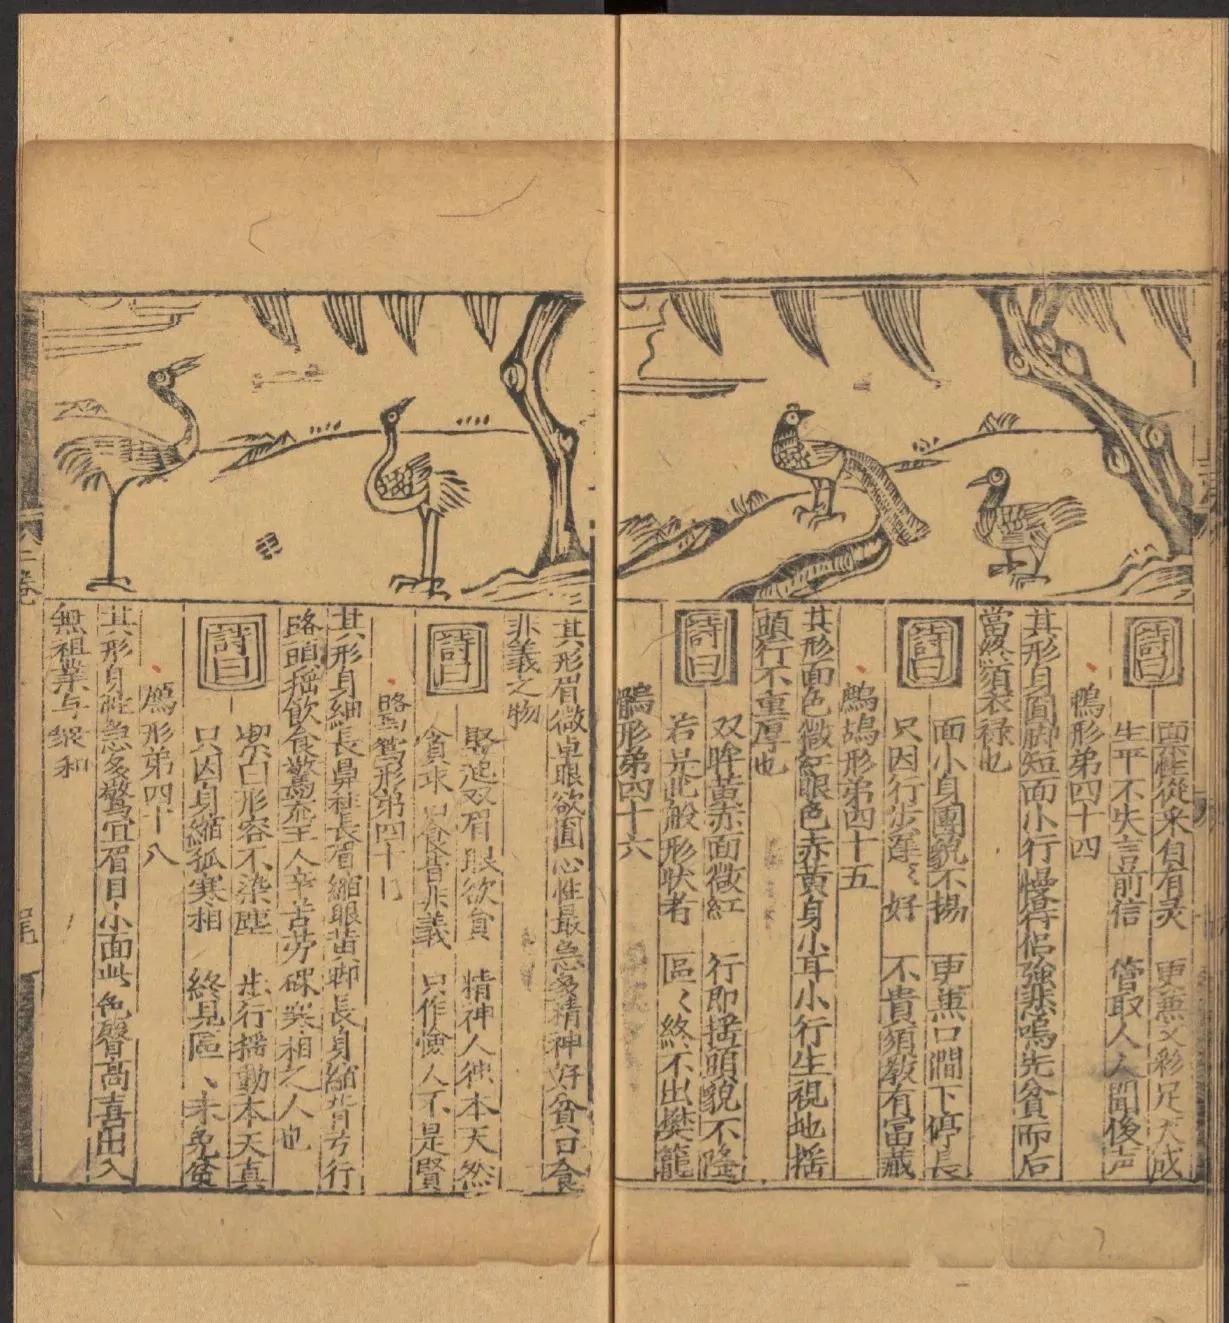 詩曰
稟性從來自有灵　更兼文彩足天成
生平不失言前信　管取人人聞後声
鴨形弟四十四
其形身圓脚短面小行慢得侣強悲鳴先貧而后
當終須衣禄也
詩曰
面小身團貌不揚　更兼口濶下停長
只因行步遲〻好　不貴須教有富藏
鷓鴣形弟四十五
其形面色微紅眼色赤黄身小耳小行坐視地摇
頭行不重厚也
詩曰
双眸黄赤面微紅　行即摇頭貌不隆
若是此般形状者　區〻終不出樊籠
形弟四十六
其形眉微卓眼欲圓心性最急多精神好貪口食
非義之物
詩曰
竪起双眉眼欲　精神人使本天然
貪求口食皆非義　只作儉人不是賢
鷺鷥形弟四十七
其形身細長鼻長眉縮眼黄脚長身縮背方行
路頭摇飲食驚荒主人辛苦劳碌寒相之人也
詩曰
潔白形容不染塵　出行摇動本天真
只因身縮孤寒相　終見區〻未免貧
形弟四十八
其形身性急多驚宜眉目小面此色聲高喜出入
無祖業与衆和
二卷